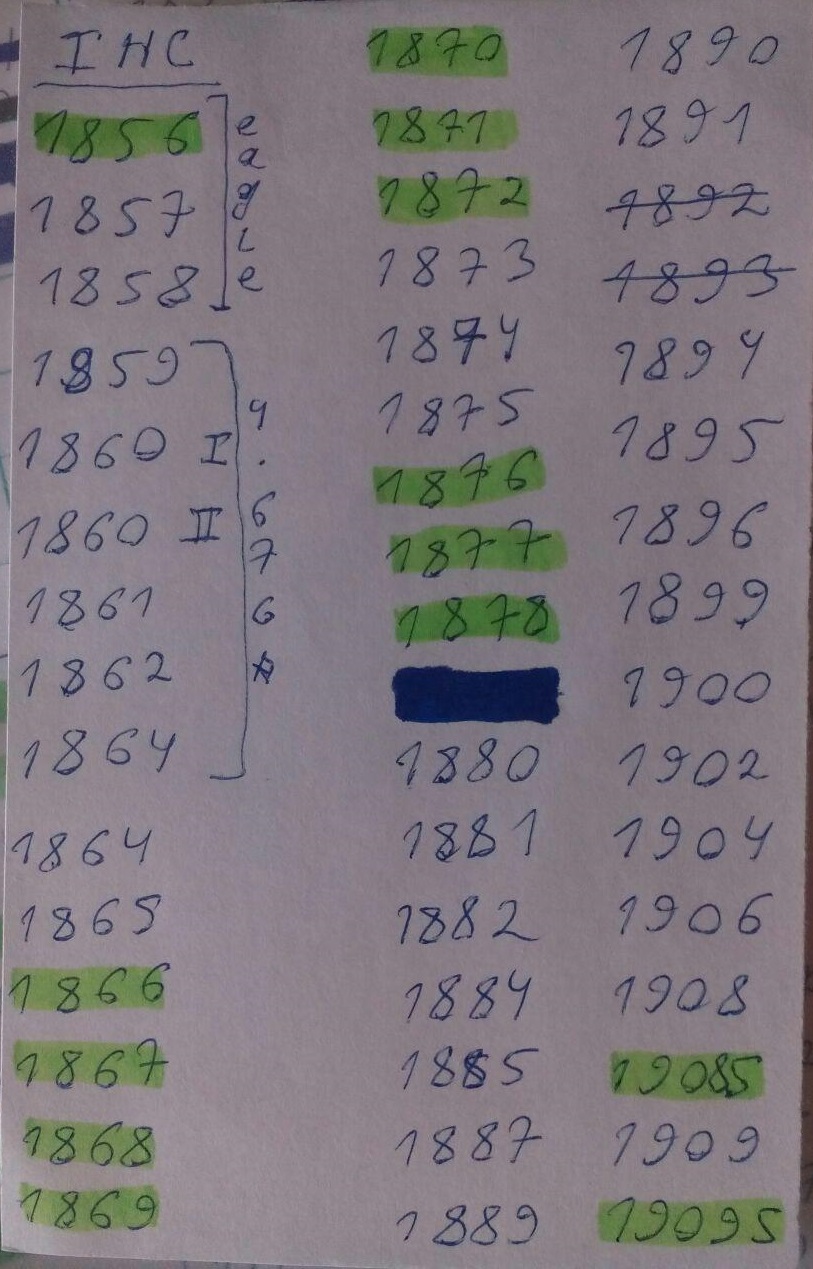 IHC
1856
1857
1858
eagle
1859
1860 I
1860 II
1861
1862
1864
4.676
1864
1865
1866
1867
1868
1869
1870
1871
1872
1873
1874
1875
1876
1877
1878
1880
1881
1882
1884
1885
1887
1889
1890
1891
1892
1893
1894
1895
1896
1899
1900
1902
1904
1906
1908
1908S
1909
1909S